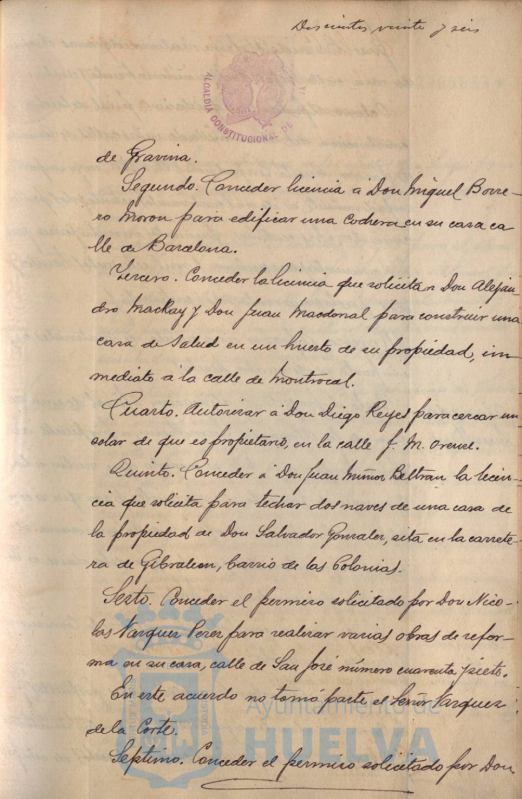 Doscientos veinte y seis
ALCALDIA CONSTITUCIONAL DE
de Gravina.
Segundo. Conceder licencia á Don Miguel Borre-
ro Moron para edificar una cochera en su casa ca
lle de Barcelona.
Tercero. Conceder la licencia que solicitan Don Alejan
dro Mackay y Don Juan Macdonal para construir una
casa de Salud en un huerto de su propiedad, in
mediato á la calle de Montrocal.
Cuarto. Autorizar á Don Diego Reyes para cercar un
solar de que es propietario, en la calle J. M. Orense.
Quinto. Conceder á Don Juan Muñoz Beltran la licen-
cia que solicita para techar dos naves de una casa de
la propiedad de Don Salvador Gonzalez, sita en la carrete-
ra de Gibraleon, barrio de las Colonias.
Sexto. Conceder el permiso solicitado por Don Nico-
las Vazquez Perez para realizar varias obras de refor-
ma en su casa, calle de San José número cuarenta y siete.
En este acuerdo no tomó parte el Señor Vazquez
de la Corte.
Septimo. Conceder el permiso solicitado por Don
Ayuntamiento de
HUELVA